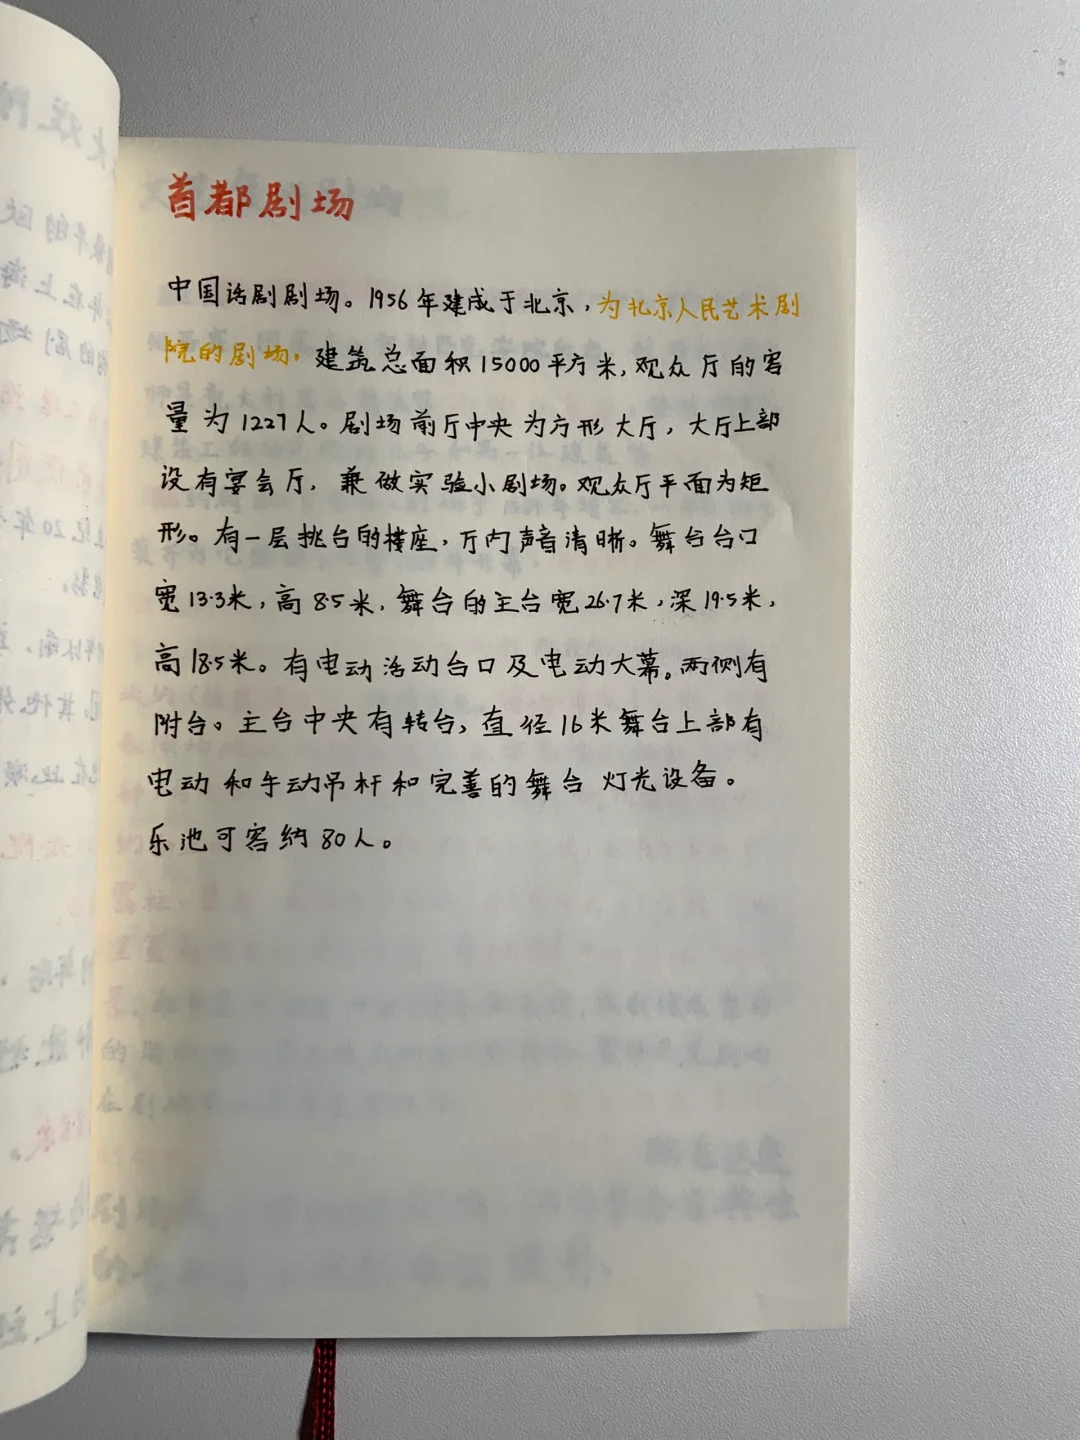 首都剧场
中国话剧剧场。1956年建成于北京，为北京人民艺术剧
院的剧场。建筑总面积15000平方米，观众厅的容
量为1227人。剧场前厅中央为方形大厅，大厅上部
设有宴会厅，兼做实验小剧场。观众厅平面为矩
形。有一层挑台的楼座，厅内声音清晰。舞台台口
宽13.3米，高8.5米，舞台的主台宽26.7米，深19.5米，
高18.5米。有电动活动台口及电动大幕。两侧有
附台。主台中央有转台，直径16米舞台上部有
电动和手动吊杆和完善的舞台灯光设备。
乐池可容纳80人。